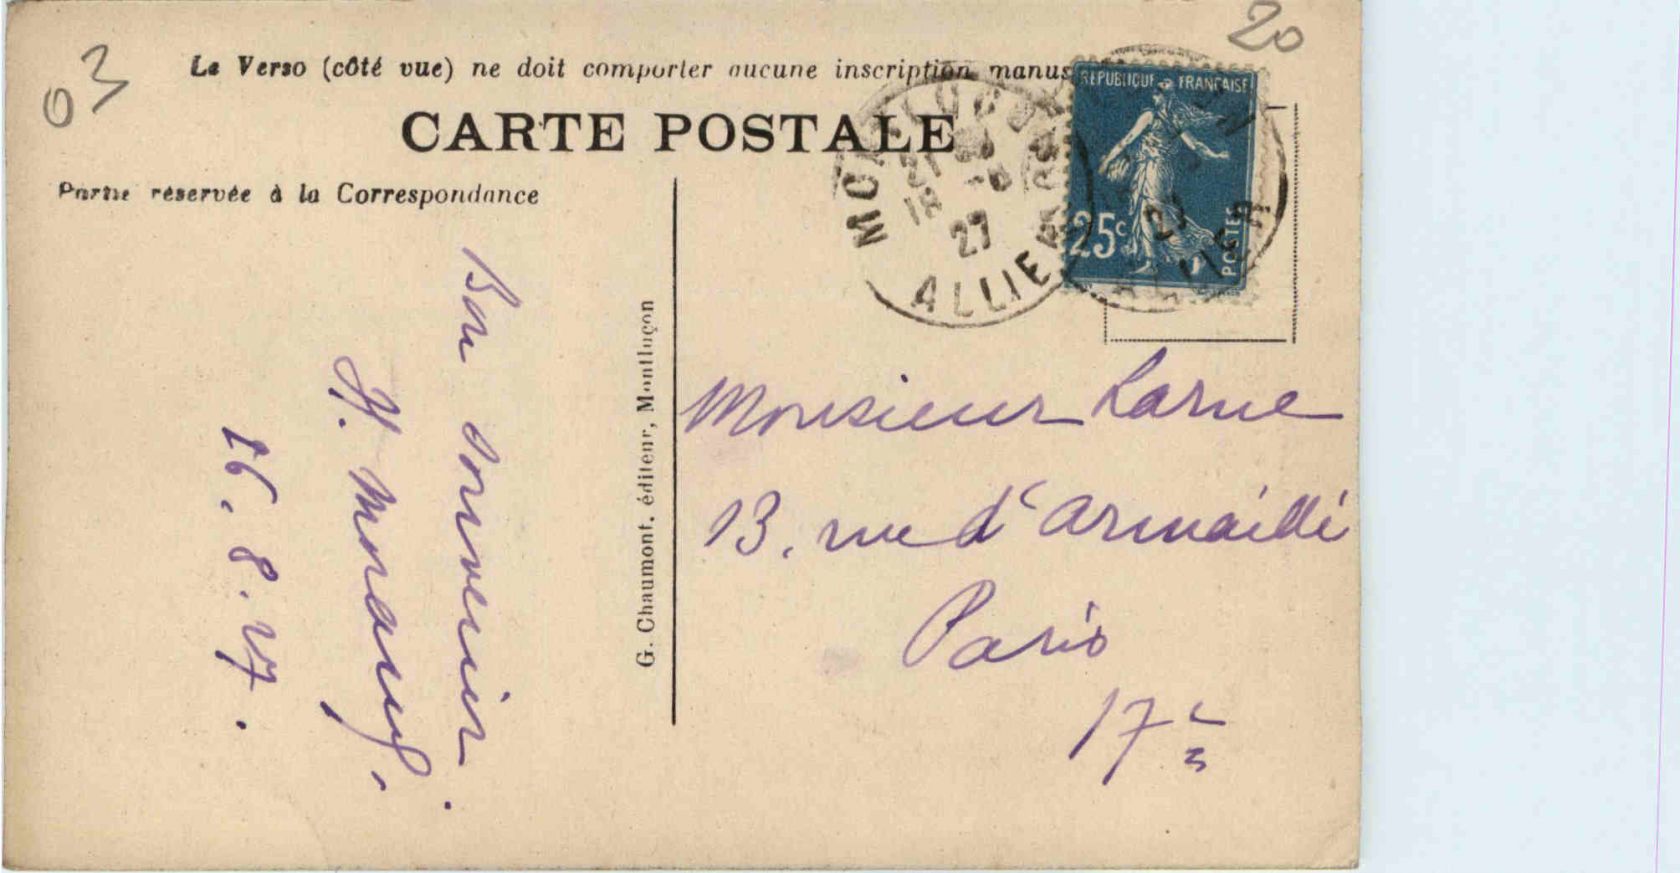 03
20
Le Verso (côté vue) ne doit comporter aucune inscription manus
CARTE POSTALE
Partie réservée à la Correspondance
RÉPUBLIQUE FRANÇAISE
25c
POSTES
ALLIER
27
Bon souvenir.
16.8.27.
G. Chaumont, éditeur, Montluçon
Monsieur Larue
13, rue d'Armaillé
Paris
17e